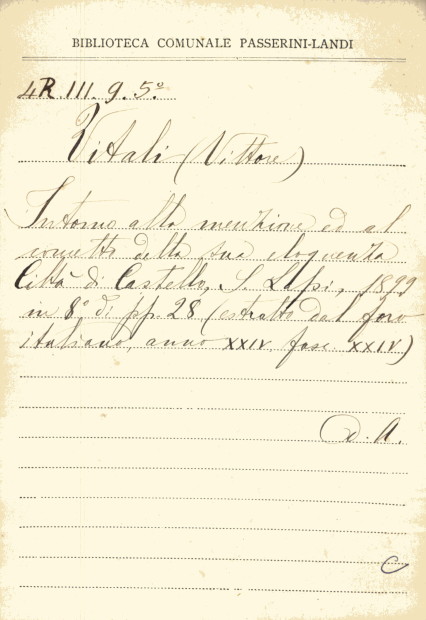 BIBLIOTECA COMUNALE PASSERINI-LANDI
4R III. 9. 5º
Vitali (Vittore)
Intorno alla menzione ed al
concetto della sua eloquenza
Città di Castello, S. Lapi, 1899
in 8º di pp. 28 (estratto dal foro
italiano, anno XXIV, fasc. XXIV)
d. A.
C